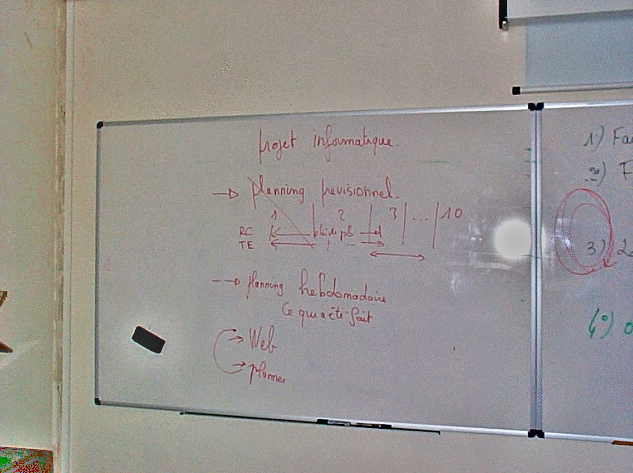 projet informatique.
→ planning previsionnel.
1 | 2 | 3 | ... | 10
RC
TE
--→ planning hebdomadaire
Ce qui a été fait
→ Web
→ planner
1) Fa
2) F
3)
4)